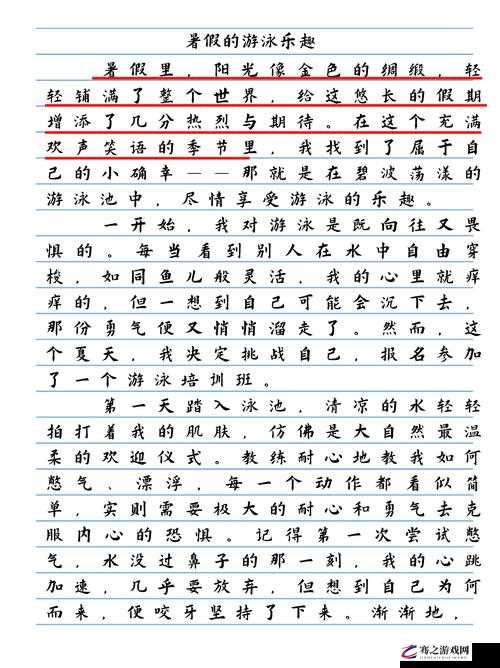 暑假的游泳乐趣
暑假里，阳光像金色的绸缎，轻
轻铺满了整个世界，给这悠长的假期
增添了几分热烈与期待。在这个充满
欢声笑语的季节里，我找到了属于自
己的小确幸——那就是在碧波荡漾的
游泳池中，尽情享受游泳的乐趣。
一开始，我对游泳是既向往又畏
惧的。每当看到别人在水中自由穿
梭，如同鱼儿般灵活，我的心里就痒
痒的，但一想到自己可能会沉下去，
那份勇气便又悄悄溜走了。然而，这
个夏天，我决定挑战自己，报名参加
了一个游泳培训班。
第一天踏入泳池，清凉的水轻轻
拍打着我的肌肤，仿佛是大自然最温
柔的欢迎仪式。教练耐心地教我如何
憋气、漂浮，每一个动作都看似简
单，实则需要极大的耐心和勇气去克
服内心的恐惧。记得第一次尝试憋
气，水没过鼻子的那一刻，我的心跳
加速，几乎要放弃，但想到自己为何
而来，便咬牙坚持了下来。渐渐地，
骞之游戏网